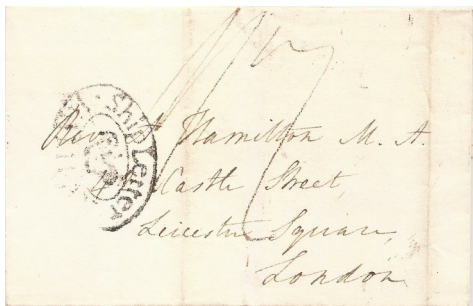 Ship Letter
Rev. Hamilton M. A.
Castle Street,
Leicester Square,
London